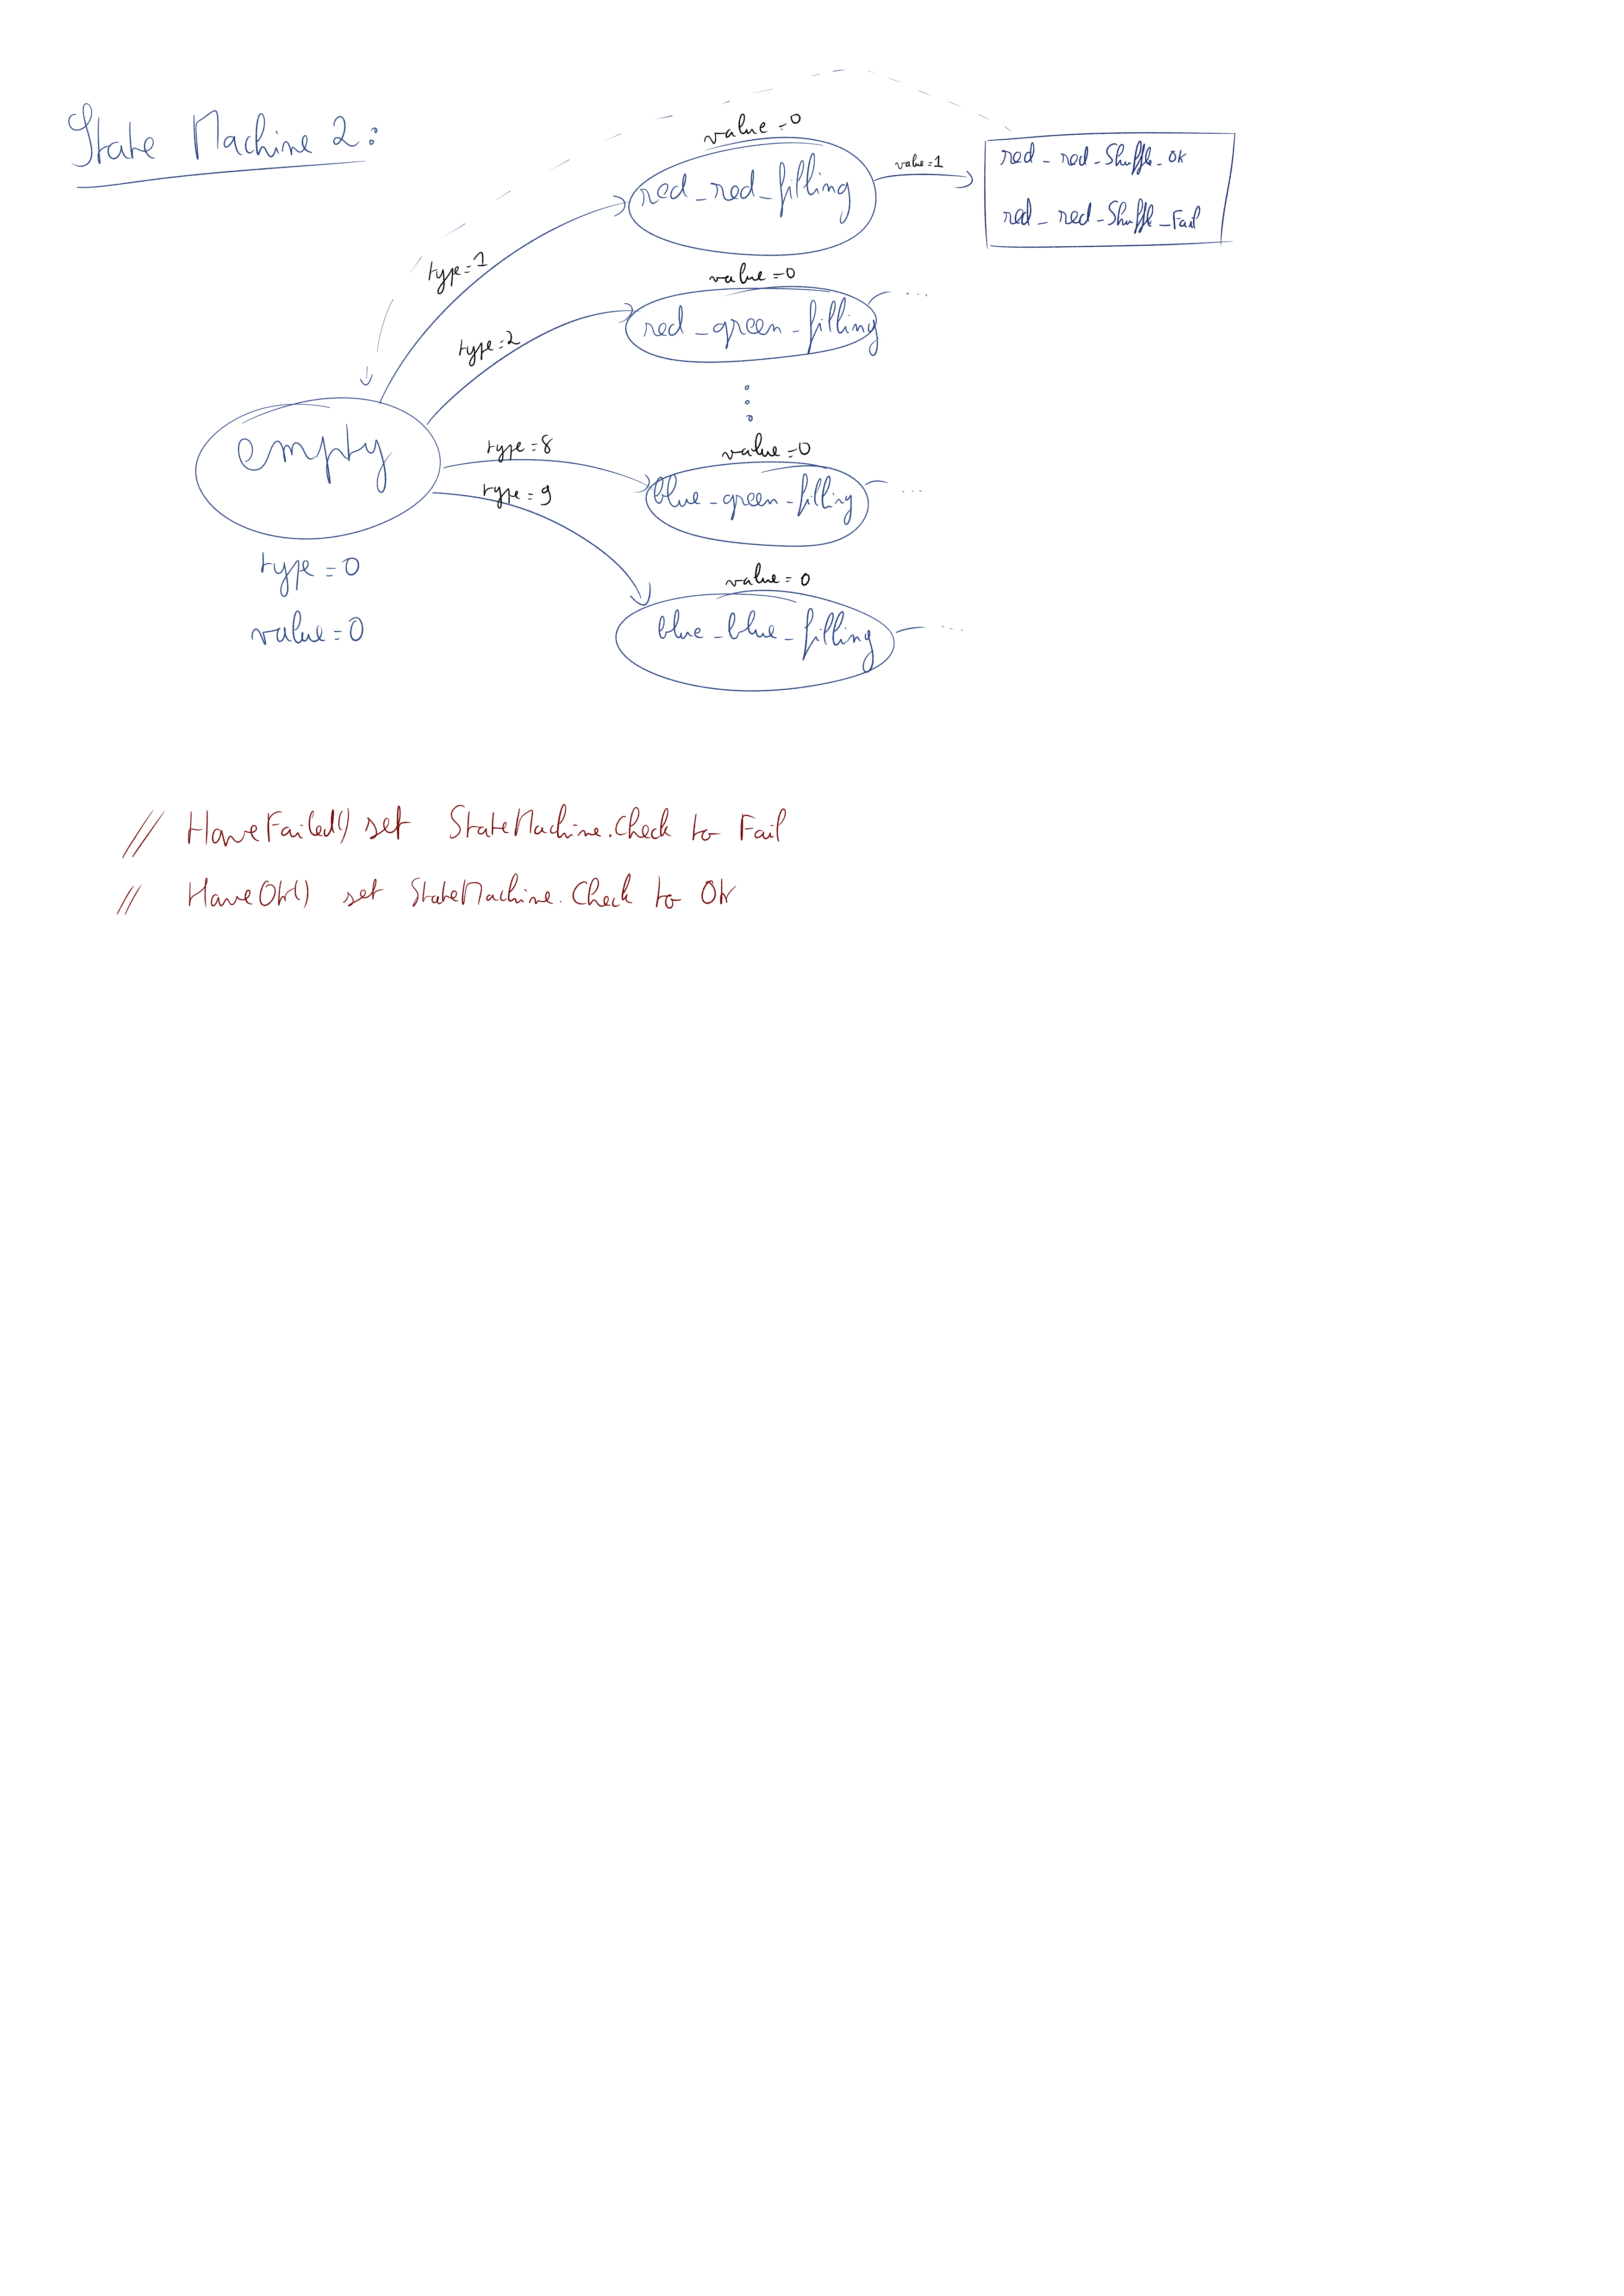 State Machine 2:
value=0
red_red_filling
value=1
red_red_Shuffle_OK
red_red_Shuffle_Fail
type=1
value=0
red_green_filling
...
type=2
empty
type=0
value=0
type=8
value=0
blue_green_filling
...
type=9
value=0
blue_blue_filling
...
// HaveFailed() set StateMachine.Check to Fail
// HaveOk() set StateMachine.Check to Ok